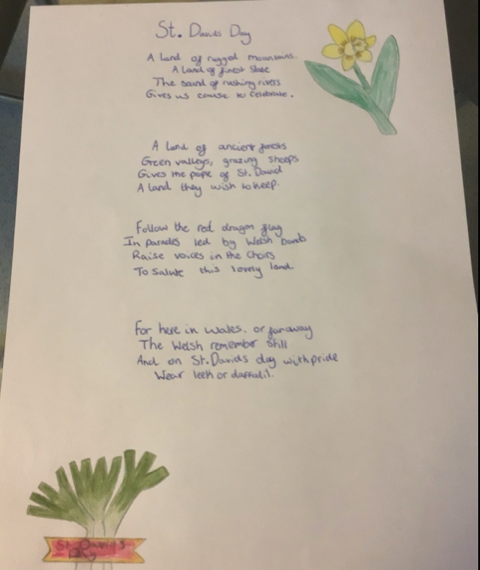 St. Davids Day
A Land of rugged mountains.
A Land of finest Slate
The sound of rushing rivers
Gives us cause to celebrate.
A Land of ancient forests
Green valleys, grazing sheeps
Gives the pope of St. David
A land they wish to keep.
Follow the red dragon flag
In parades led by Welsh Bands
Raise voices in the Choirs
To Salute this lovely land.
For here in Wales. or far away
The Welsh remember Still
And on St. Davids day with pride
Wear leek or daffodil.
St. David's
Day